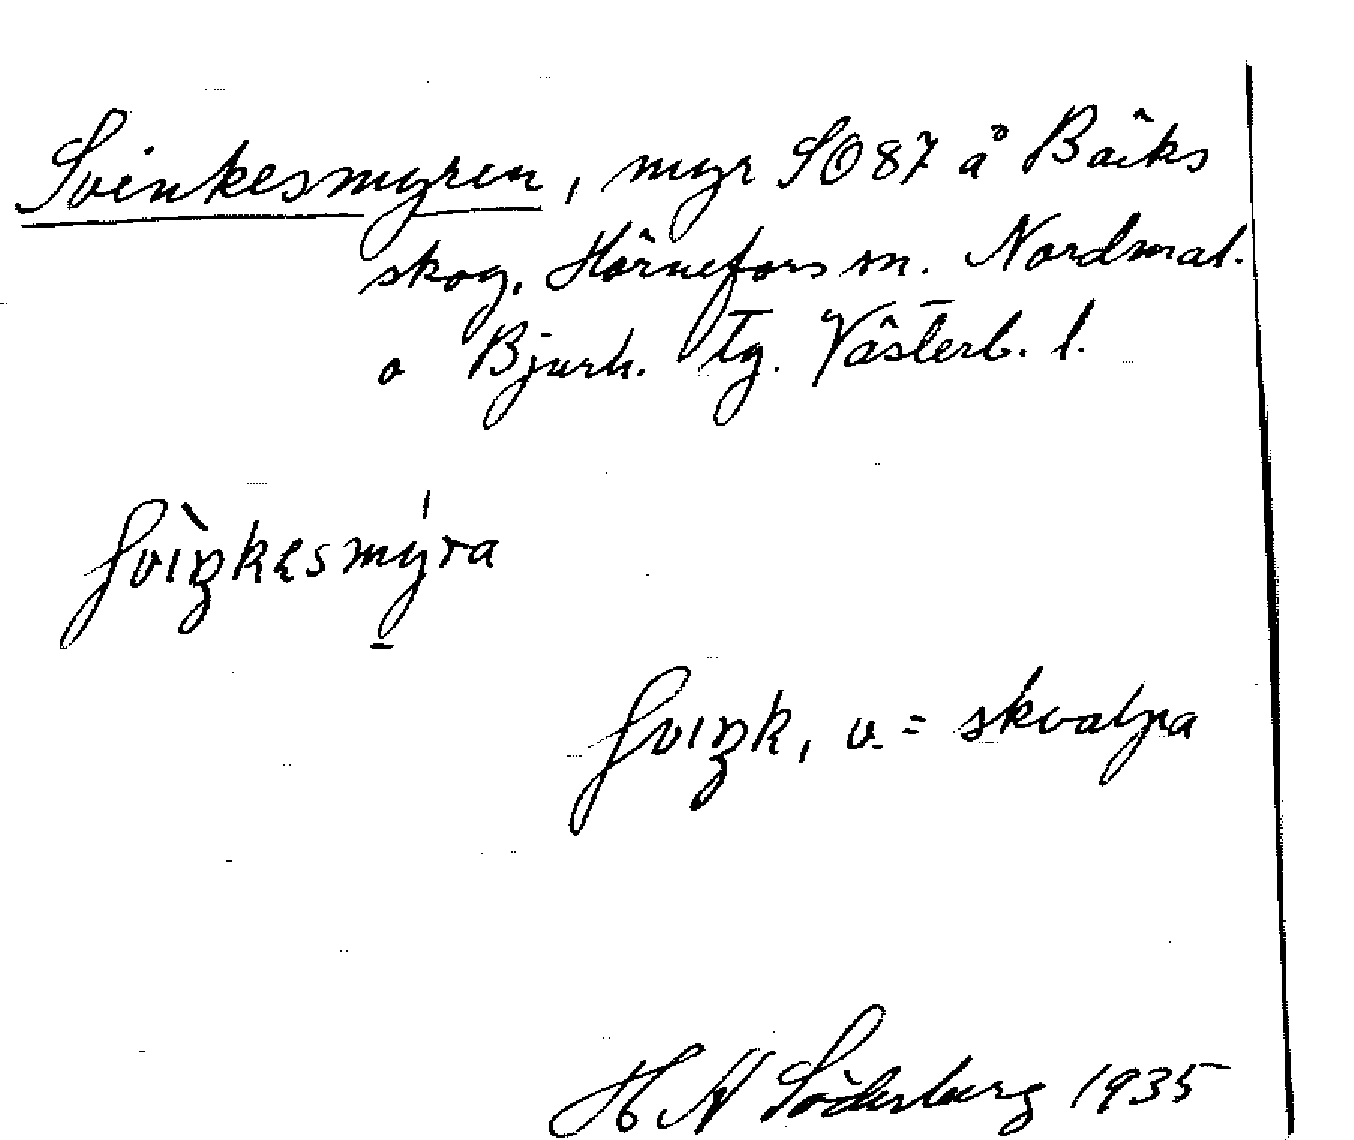 Svinkesmyren, myr SO 87 å Bäcks
skog, Hörnefors sn. Nordmal.
o Bjurh. tg. Västerb. l.
ʃvìŋkesmy̱ra
ʃvıŋk, v. = skvalpa
H W Söderberg 1935